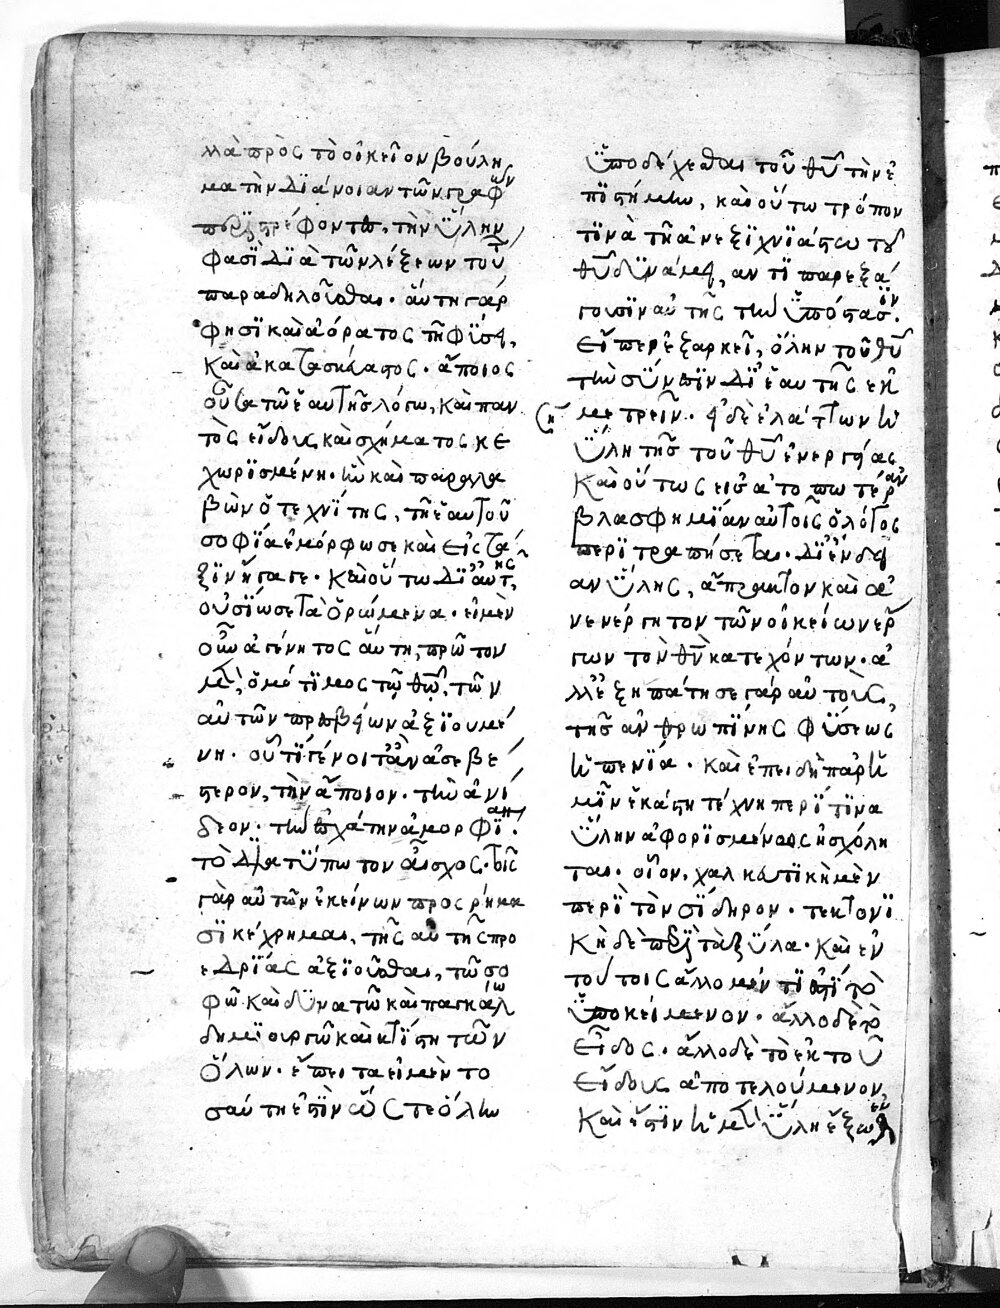 μα πρὸς τὸ οἰκεῖον βούλη
μα τὴν διάνοιαν τῶν γραφῶν
περιστρέφοντες, τὴν ὕλην
φασὶ διὰ τῶν λέξεων τούτ
παραδηλοῦσθαι. αὕτη γάρ
φησι καὶ ἀόρατος τῇ φύσει,
καὶ ἀκατασκεύαστος. ἄποιος
οὖσα τῷ ἑαυτῆς λόγω, καὶ παν
τὸς εἴδους καὶ σχήματος κε
χωρισμένη. ἣν καὶ παραλα
βὼν ὁ τεχνίτης, τῇ ἑαυτοῦ
σοφία ἐμόρφωσε καὶ εἰς τά
ξιν ἤγαγε. καὶ οὕτω δι αὐτῆς,
οὐσίωσε τὰ ὁρώμενα. εἰ μὲν
οὖν ἀγένητος αὕτη, πρῶτον
μὲν, ὁμότιμος τῷ θω, τῶν
αὐτῶν πρεσβείων ἀξιουμέ
νη. οὗ τί γένοιτ ἂν ἀσεβέ
στερον, τὴν ἄποιον. τὴν ἀνεί
δεον. τὴν ἐσχάτην ἀμορφίαν.
τὸ ἀδιατύπωτον αἶσχος. τοῖς
γὰρ αὐτῶν ἐκείνων προσρήμα
σι κέχρημαι, τῆς αὐτῆς προ
εδρίας ἀξιοῦσθαι, τῶ σο
φῶ καὶ δυνατῶ καὶ παγκάλω
δημιουργῶ καὶ κτίστη τῶν
ὅλων. ἔπειτα εἰ μὲν το
σαύτη ἐστὶν ὥστε ὅλην
ὑποδέχεσθαι τοῦ θυ τὴν ἐ
πιστήμην, καὶ οὕτω τρόπον
τινὰ τῇ ἀνεξιχνιάστω τοῦ
θυ δυνάμει, ἀντιπαρεξά
γουσιν αὐτῆς τὴν ὑπόστασιν.
εἴπερ ἐξαρκεῖ, ὅλην τοῦ θυ
τὴν σύνεσιν δι ἑαυτῆς ἐκ
μετρεῖν. εἰ δὲ ἐλάττων ἡ
ὕλη τῆς τοῦ θυ ἐνεργείας
καὶ οὕτως εἰς ἀτοπωτέραν
βλασφημίαν αὐτοῖς ὁ λόγος
περιτραπήσεται. δι ἔνδει
αν ὕλης, ἄπρακτον καὶ ἀ
νενέργητον τῶν οἰκείων ἔρ
γων τὸν θν κατεχόντων. ἀλ
λ ἐξηπάτησε γὰρ αὐτοὺς,
τῆς ἀνθρωπίνης φύσεως
ἡ πενία. καὶ ἐπειδὴ παρ ἡ
μῖν ἑκάστη τέχνη περί τινα
ὕλην ἀφορισμένως ἠσχόλη
ται. οἷον, χαλκευτικὴ μὲν
περὶ τὸν σίδηρον. τεκτονι
κὴ δὲ περὶ τὰ ξύλα. καὶ ἐν
τούτοις ἄλλο μέν τι ἐστὶ τὸ
ὑποκείμενον. ἄλλο δὲ τὸ
εἶδος. ἄλλο δὲ τὸ ἐκ τοῦ
εἴδους ἀποτελούμενον,
καὶ ἔστιν ἡ μὲν ὕλη ἔξωθεν